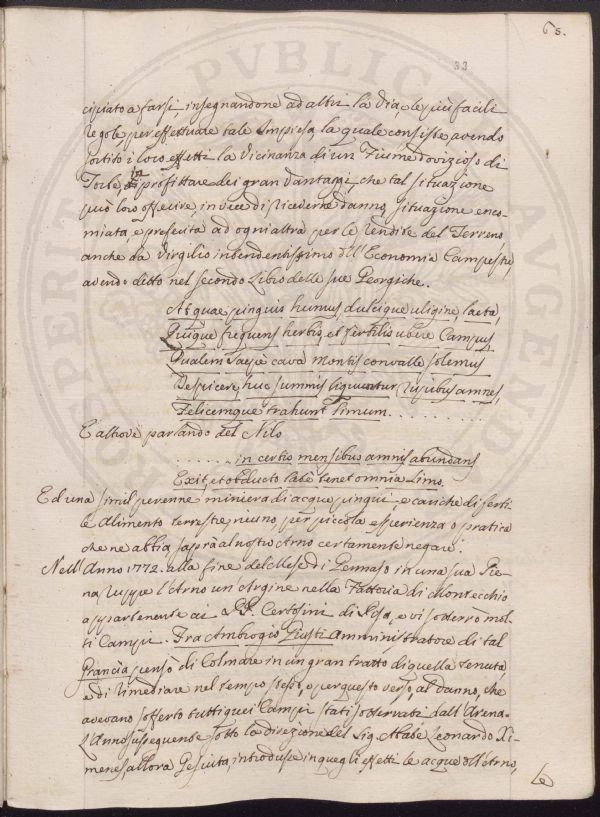 65.
33
cipiato a farsi, insegnandone ad altri la via, e le più facili
regole, per effettuare tale Impresa, la quale consiste avendo
sortito i loro effetti la vicinanza di un Fiume dovizioso di
Torbe, in profittare dei gran vantaggi, che tal situazione
può loro offerire, invece di riceverne danno, situazione enco-
miata, e preferita ad ogni altra per le rendite del Terreno
anche da Virgilio intendentissimo dell'Economia Campestre,
avendo detto nel secondo Libro delle sue Georgiche.
At quae pinguis humus, dulcique uligine laeta,
Quique frequens herbis, et fertilis ubere Campus
Qualem saepe cava montis convalle solemus
Despicere, huc summis liquuntur rupibus amnes,
Felicemque trahunt Limum..........
E altrove parlando del Nilo
...... in certis mensibus amnis abundans
Exit, et obducto late tenet omnia Limo.
Ed una simil perenne miniera di acque pingui, e cariche di ferti-
le Alimento terrestre, niuno, per piccola esperienza o pratica
che ne abbia, saprà al nostro Arno certamente negare.
Nell'Anno 1772. alla fine del Mese di Gennaio in una sua Pie-
na, ruppe l'Arno un Argine nella Fattoria di Montecchio
appartenente ai PP. Certosini di Pisa, e vi sotterrò mol-
ti Campi. Fra Ambrogio Giusti Amministratore di tal
Grancia pensò di Colmare in un gran tratto di quella Tenuta,
e di rimediare nel tempo stesso, e per questo verso, al danno, che
avevano sofferto tutti quei Campi stati sotterrati dall'Arena.
L'Anno susseguente sotto la direzione del Sig. Abate Leonardo Xi-
menes allora Gesuita, introdusse in quegli effetti le acque dell'Arno,
le
PVBLIC
AVGENDO